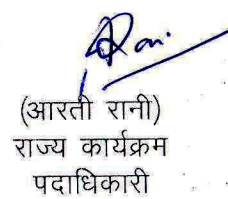 (आरती रानी)
राज्य कार्यक्रम
पदाधिकारी